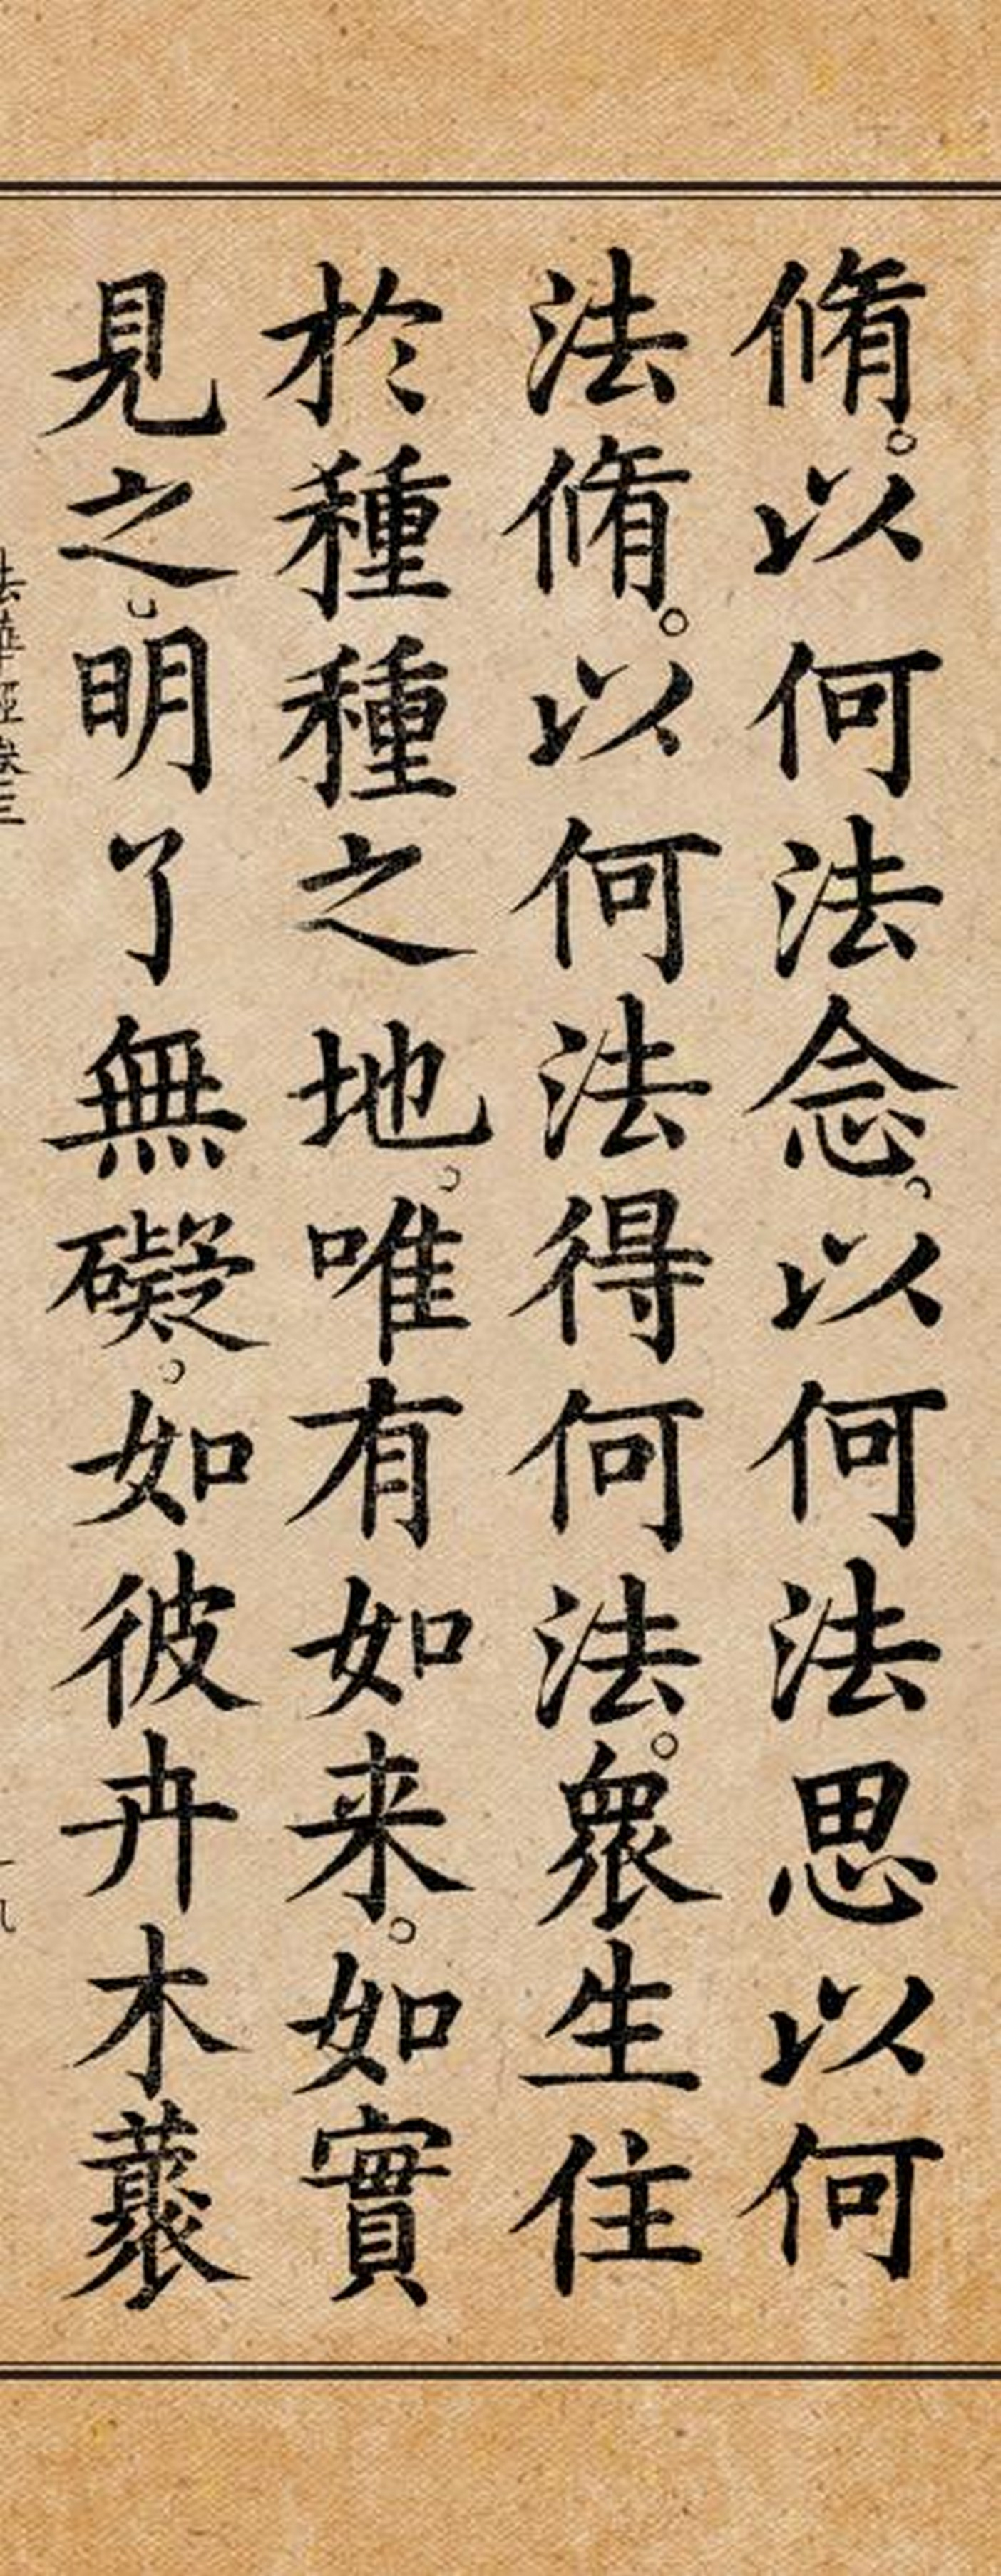 脩。以何法念。以何法思以何
法脩。以何法得何法。衆生住
於種種之地。唯有如来。如實
見之。明了無礙。如彼卉木藂
法華經卷三